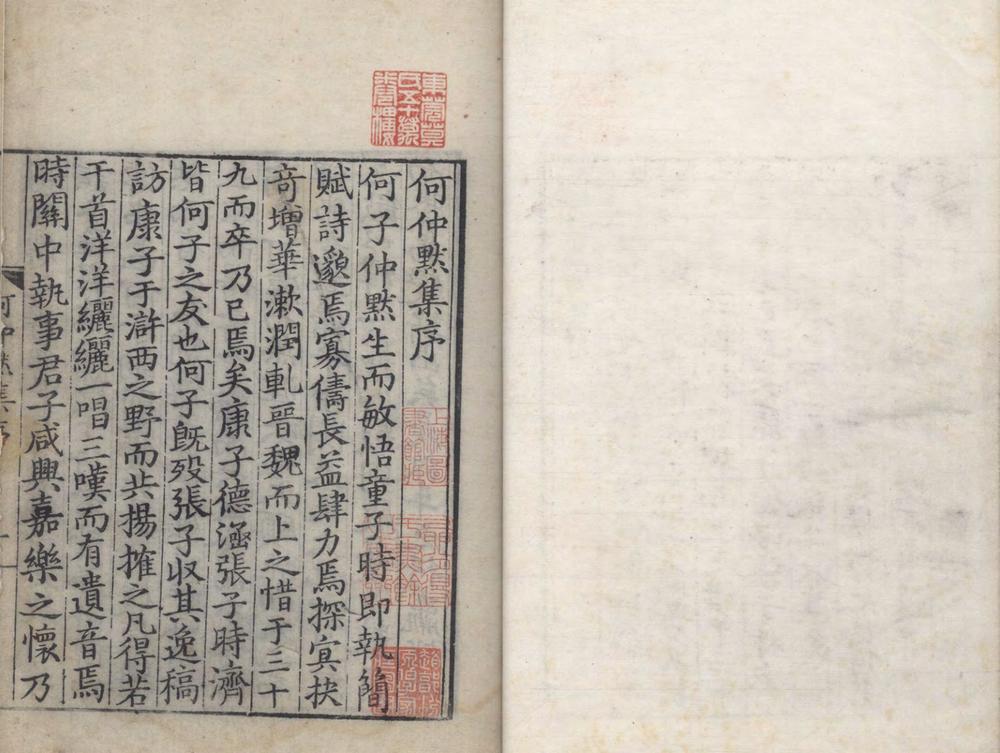 何仲黙集序
何子仲黙生而敏悟童子時即執簡
賦詩邈焉寡儔長益肆力焉探㝠抉
竒增華漱潤軋晉魏而上之惜于三十
九而卒乃已焉矣康子德涵張子時濟
皆何子之友也何子旣歿張子収其逸稿
訪康子于滸西之野而共揚搉之凡得若
干首洋洋纚纚一唱三嘆而有遺音焉
時關中執事君子咸興嘉樂之懷乃
何仲黙集序
東莞莫
氏五十萬
卷樓
上海圖
書館藏